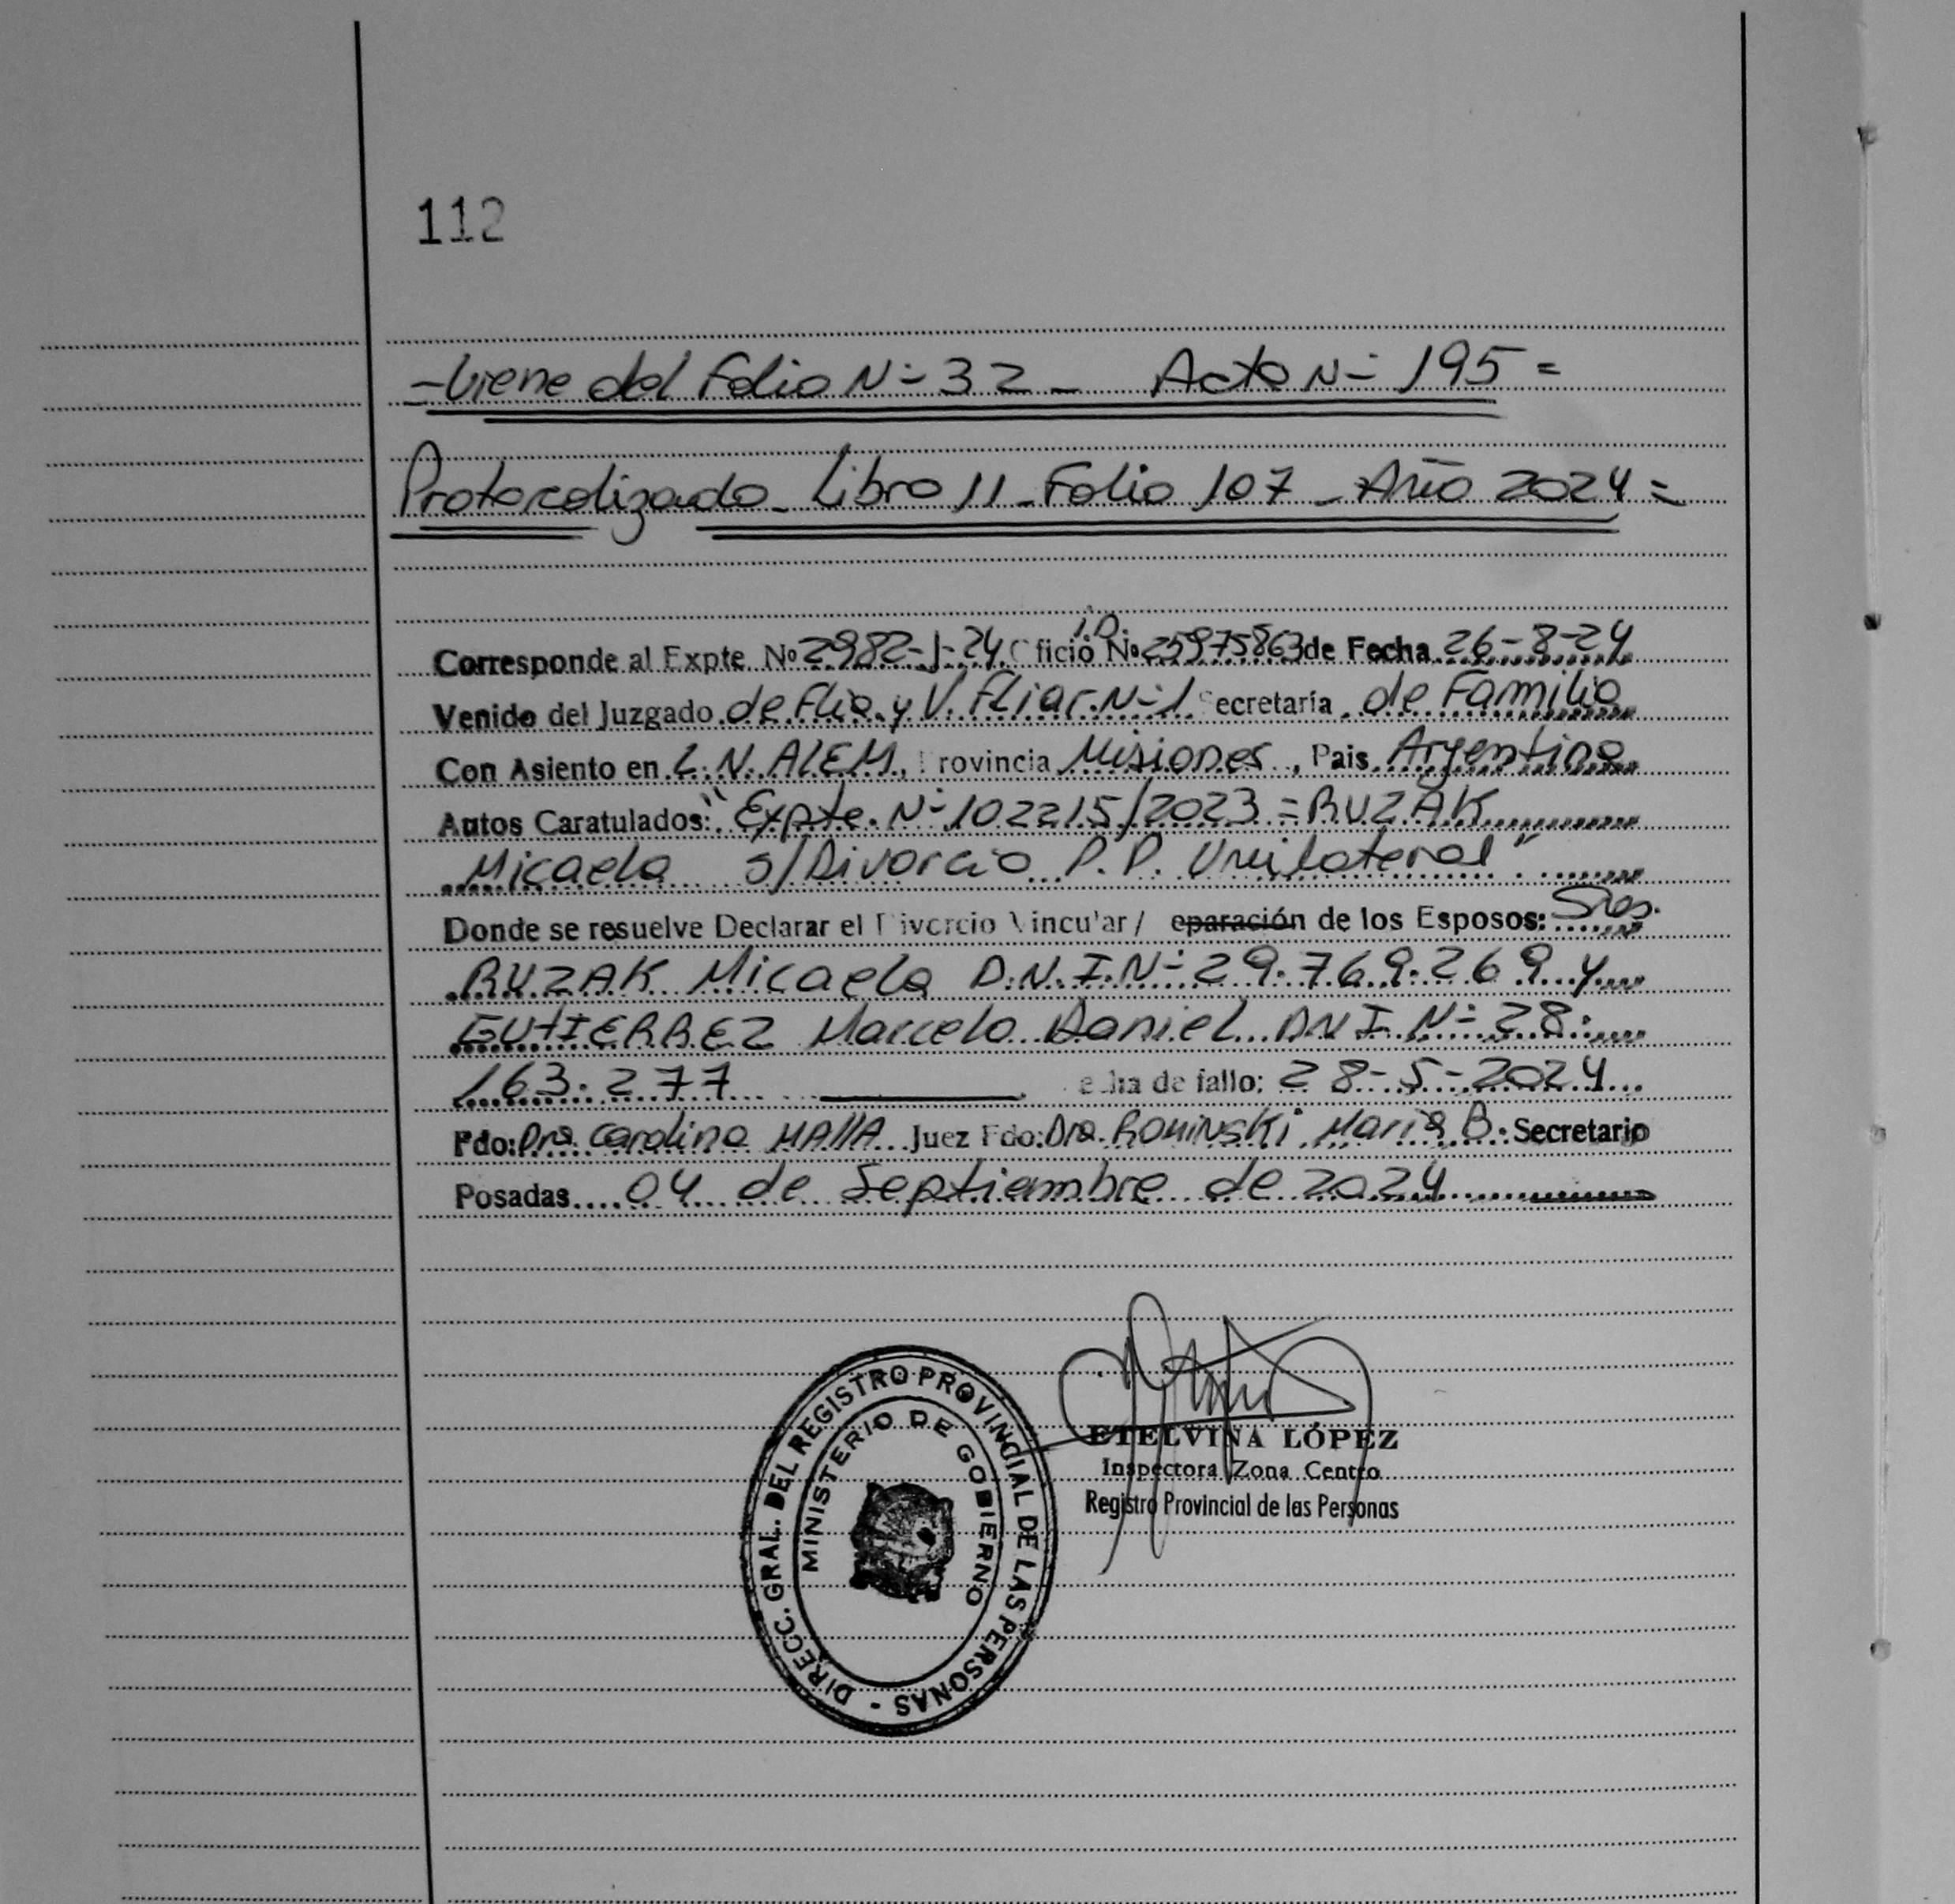 112
-Viene del Folio N- 32 - Acta N- 195=
Protocolizado - Libro 11 - Folio 107 - Año 2024=
Corresponde al Expte Nº 2982-J-24 ficio I.D. Nº 25975863 de Fecha 26-8-24
Venido del Juzgado de Flia. y V. Fliar. N-1 ecretaría de Familia
Con Asiento en L.N. ALEM, rovincia Misiones, Pais Argentina
Autos Caratulados: "Expte. N- 102215/2023 = RUZAK
Micaela s/Divorcio P.P. Unilateral"
Donde se resuelve Declarar el ivorcio Vincular/ eparación de los Esposos: Sres.
RUZAK Micaela D.N.I. N- 29.769.269 y
GUTIERREZ Marcelo Daniel DNI N- 28.
163.277 echa de fallo: 28-5-2024
Fdo: Dra. Carolina MALLA Juez Fdo: Dra. Rominski Maria B. Secretario
Posadas 04 de Septiembre de 2024
DIRECC. GRAL. DEL REGISTRO PROVINCIAL DE LAS PERSONAS -
MINISTERIO DE GOBIERNO
ETELVINA LÓPEZ
Inspectora Zona Centro
Registro Provincial de las Personas